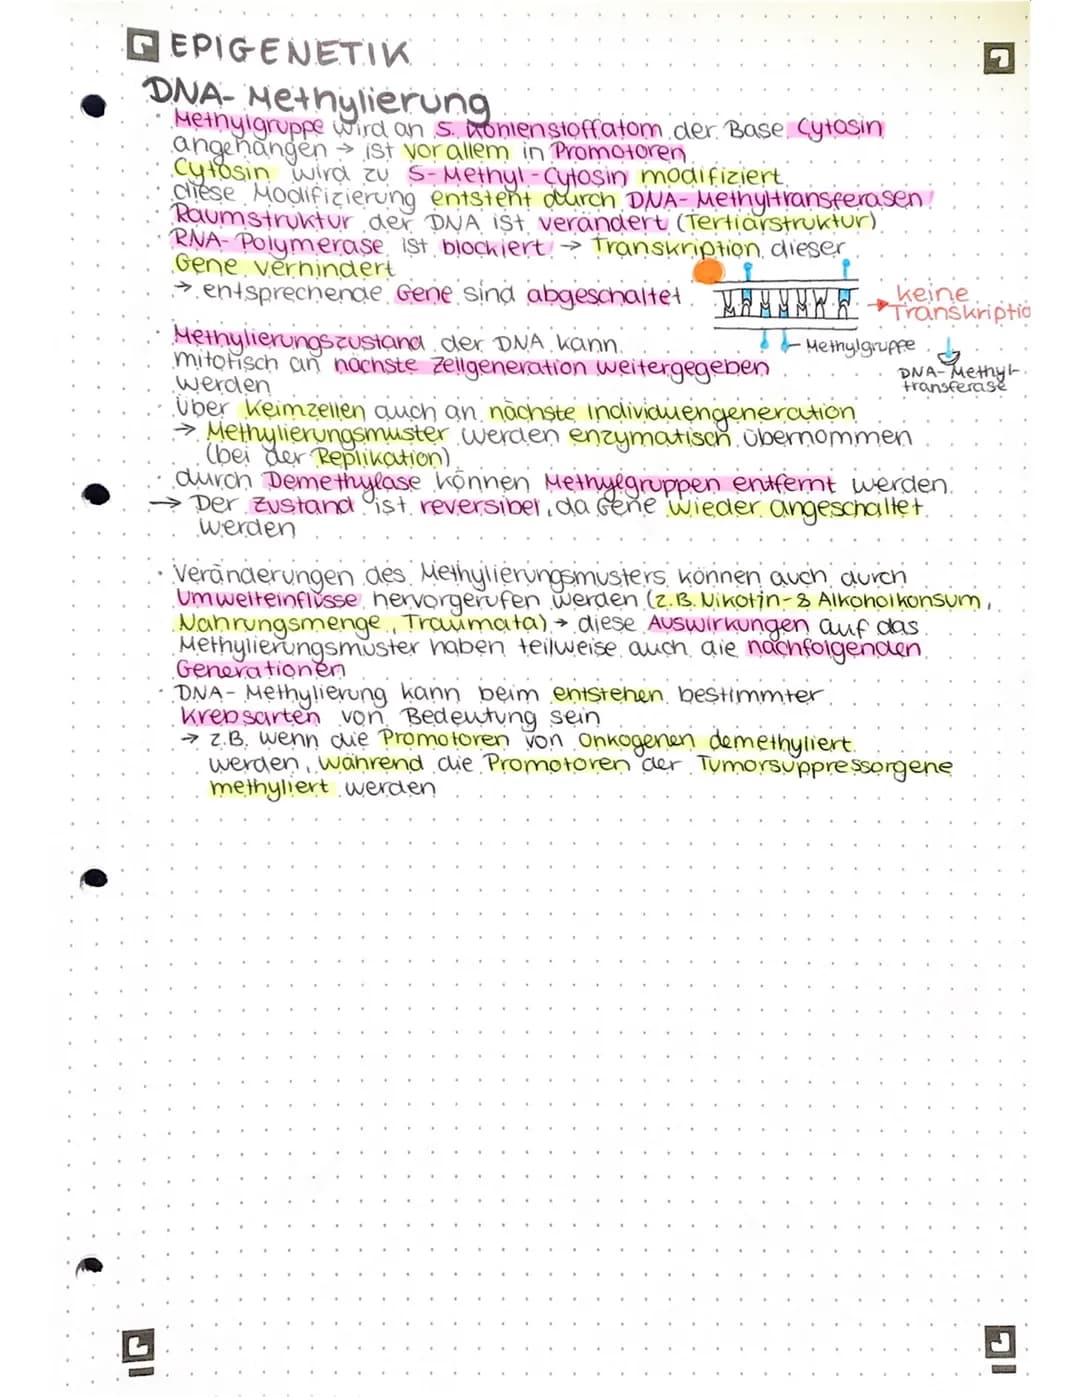 EPIGENETIK
DNA-Methylierung
• Methylgruppe wird an 5. Kohlenstoffatom der Base Cytosin
angehangen → ist vor allem in Promotoren
• Cytosin wird zu 5-Methyl-Cytosin modifiziert
• diese Modifizierung entsteht durch DNA-Methyltransferasen
Raumstruktur der DNA ist verändert (Tertiärstruktur)
RNA-Polymerase ist blockiert → Transkription dieser
Gene verhindert
→ entsprechende Gene sind abgeschaltet
keine
Transkriptio
Methylgruppe
DNA-Methyl-
transferase
• Methylierungszustand der DNA kann
mitotisch an nächste Zellgeneration weitergegeben
werden
Über Keimzellen auch an nächste Individuengeneration
→ Methylierungsmuster werden enzymatisch übernommen
(bei der Replikation)
• durch Demethylase können Methylgruppen entfernt werden
→ Der Zustand ist reversibel, da Gene wieder angeschaltet
werden
• Veränderungen des Methylierungsmusters können auch durch
Umwelteinflüsse hervorgerufen werden (z.B. Nikotin- & Alkoholkonsum,
Nahrungsmenge, Traumata) → diese Auswirkungen auf das
Methylierungsmuster haben teilweise auch die nachfolgenden
Generationen
• DNA-Methylierung kann beim entstehen bestimmter
Krebsarten von Bedeutung sein
→ z.B. wenn die Promotoren von Onkogenen demethyliert
werden, während die Promotoren der Tumorsuppressorgene
methyliert werden